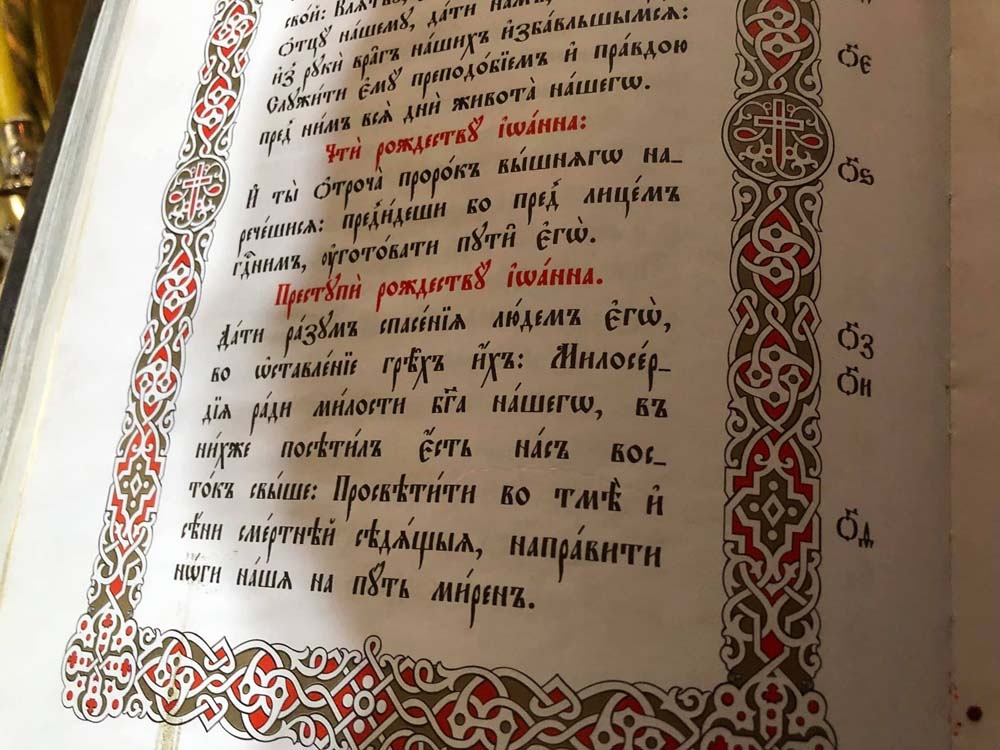 свое́й: Кла́тву,
Ѻ҆тцꙋ̀ на́шемꙋ, да́ти на́мъ,
и҆з̾ рꙋкѝ вра̑гъ на́шихъ и҆зба́вльшымсѧ:
Слꙋжи́ти є҆мꙋ̀ преподо́бїемъ и҆ пра́вдою
пред̾ ни́мъ всѧ̑ дни̑ живота̀ на́шегѡ.
Чтѝ рождествꙋ̀ і҆ѡа́нна:
И҆ ты̀ ѻ҆троча̀ проро́къ вы́шнѧгѡ на_
рече́шисѧ: пред̾и́деши бо пред̾ лице́мъ
гдⷭ҇нимъ, ᲂу҆гото́вати пꙋти̑ є҆гѡ̀.
Престꙋпѝ рождествꙋ̀ і҆ѡа́нна.
Да́ти ра́зꙋмъ спасе́нїѧ лю́демъ є҆гѡ̀,
во ѡ҆ставле́нїе грѣ̑хъ и҆́хъ: Милосе́р_
дїѧ ра́ди ми́лости бг҃а на́шегѡ, въ
ни́хже посѣти́лъ є҆́сть на́съ вос_
то́къ свы́ше: Просвѣти́ти во тмѣ̀ и҆
сѣ́ни сме́ртнѣй сѣдѧ́щыѧ, напра́вити
но́ги на́шѧ на пꙋ́ть ми́ренъ.
Ѻ҃є
Ѻ҃ѕ
Ѻ҃з
Ѻ҃и
Ѻ҃ѳ